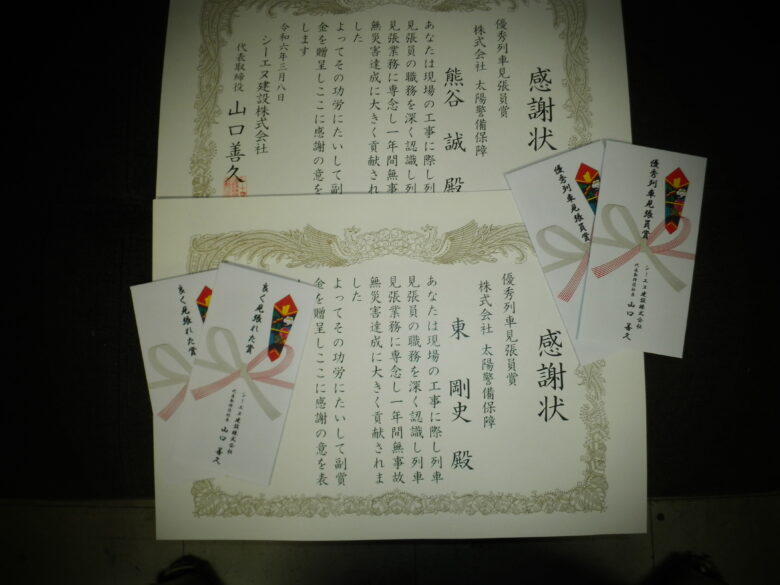 感謝状
優秀列車見張員賞
株式会社 太陽警備保障
熊谷 誠 殿
あなたは現場の工事に際し列
見張員の職務を深く認識し列
見張業務に専念し一年間無事
無災害達成に大きく貢献され
した
よってその功労にたいして副
金を贈呈しここに感謝の意を
します
令和六年三月八日
シーエヌ建設株式会社
代表取締役 山口善久
感謝状
優秀列車見張員賞
株式会社 太陽警備保障
東 剛史 殿
あなたは現場の工事に際し列車
見張員の職務を深く認識し列車
見張業務に専念し一年間無事故
無災害達成に大きく貢献されま
した
よってその功労にたいして副賞
金を贈呈しここに感謝の意を表
優秀列車見張員賞
シーエヌ建設株式会社
代表取締役社長 山口善久
優秀列車見張員賞
良く見張れた賞
シーエヌ建設株式会社
代表取締役社長 山口善久
良く見張れた賞